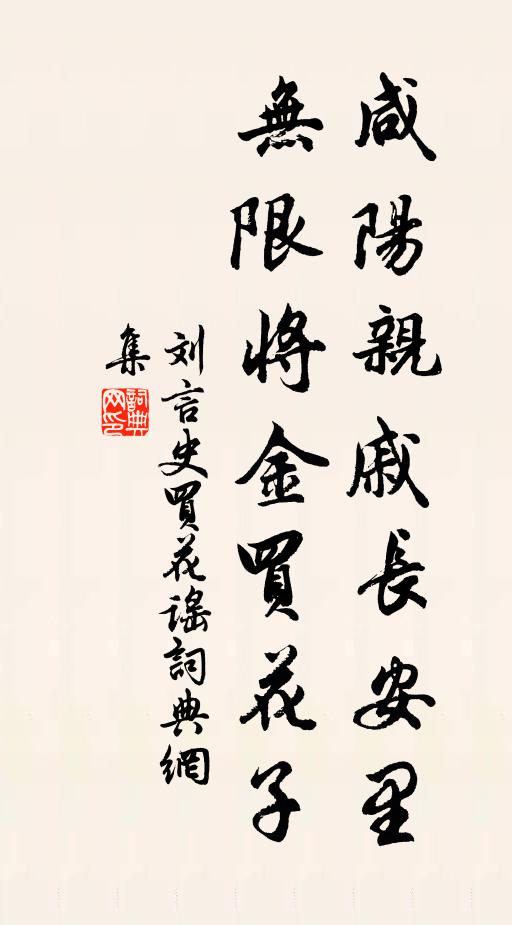 咸陽親戚長安里
無限將金買花子
刘言史買花謠詞典網
集
詞典
网印